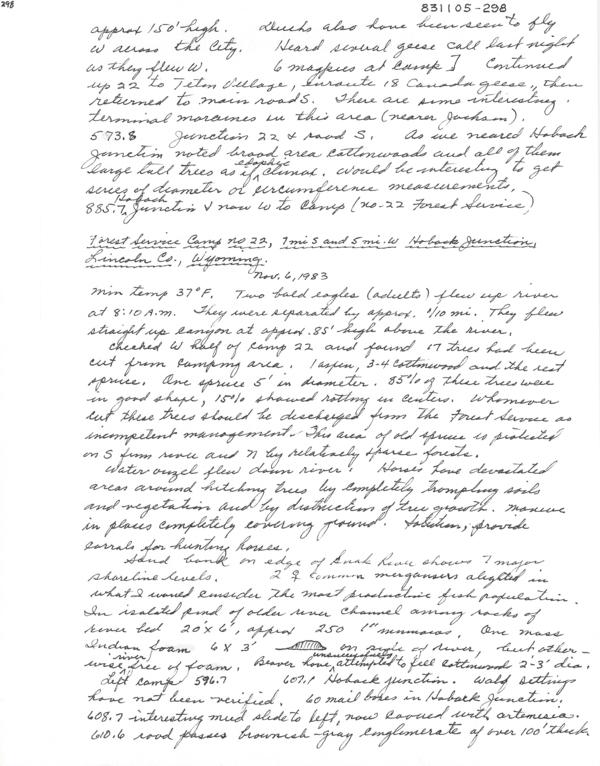 298
831105-298
approx 150' high. Ducks also have been seen to fly
W across the City. Heard several geese call last night
as they flew W. 6 magpies at Camp] Continued
up 22 to Teton Village, enroute 18 Canada geese, then
returned to main road S. There are some interesting
terminal moraines in this area (nearer Jackson).
573.8 Junction 22 & road S. As we neared Hoback
Junction noted broad area cottonwoods and all of them
large tall trees as if edaphic climax. Would be interesting to get
series of diameter or circumference measurements.
885.7 Hoback Junction & now W to Camp (no-22 Forest Service)
Forest Service Camp no 22, 7 mi S and 5 mi W Hoback Junction,
Lincoln Co., Wyoming.
Nov. 6, 1983
Min temp 37°F. Two bald eagles (adults) flew up river
at 8:10 A.M. They were separated by approx. 1/10 mi. They flew
straight up canyon at approx. 85' high above the river.
Checked W half of Camp 22 and found 17 trees had been
cut from camping area. 1 aspen, 3-4 cottonwood and the rest
spruce. One spruce 5' in diameter. 85% of these trees were
in good shape, 15% showed rotting in centers. Whomever
cut these trees should be discharged from the Forest Service as
incompetent management. This area of old spruce is protected
on S from river and N by relatively sparse forests.
Water ouzel flew down river. Horses have devastated
areas around hitching trees by completely trampling soils
and vegetation and by distruction of tree growth. Manure
in places completely covering ground. Solution, provide
corrals for hunting horses.
Sand bank on edge of Snak River shows 7 major
shoreline levels. 2 ♀ common mergansers alighted in
what I would consider the most productive fish population.
In isolated pond of older river channel among rocks of
river bed 20' x 6', approx 250 1" minnows. One mass
Indian foam 6 x 3' on side of river, but other-
wise river free of foam. Beaver have unsuccessfully attempted to fell cottonwood 2-3' dia.
Left camp 596.7 607.1 Hoback Junction. Wald settings
have not been verified. 60 mail boxes in Hoback Junction.
608.7 interesting mud slide to left, now covered with artemesia.
610.6 road passes brownish-gray conglomerate of over 100' thick.